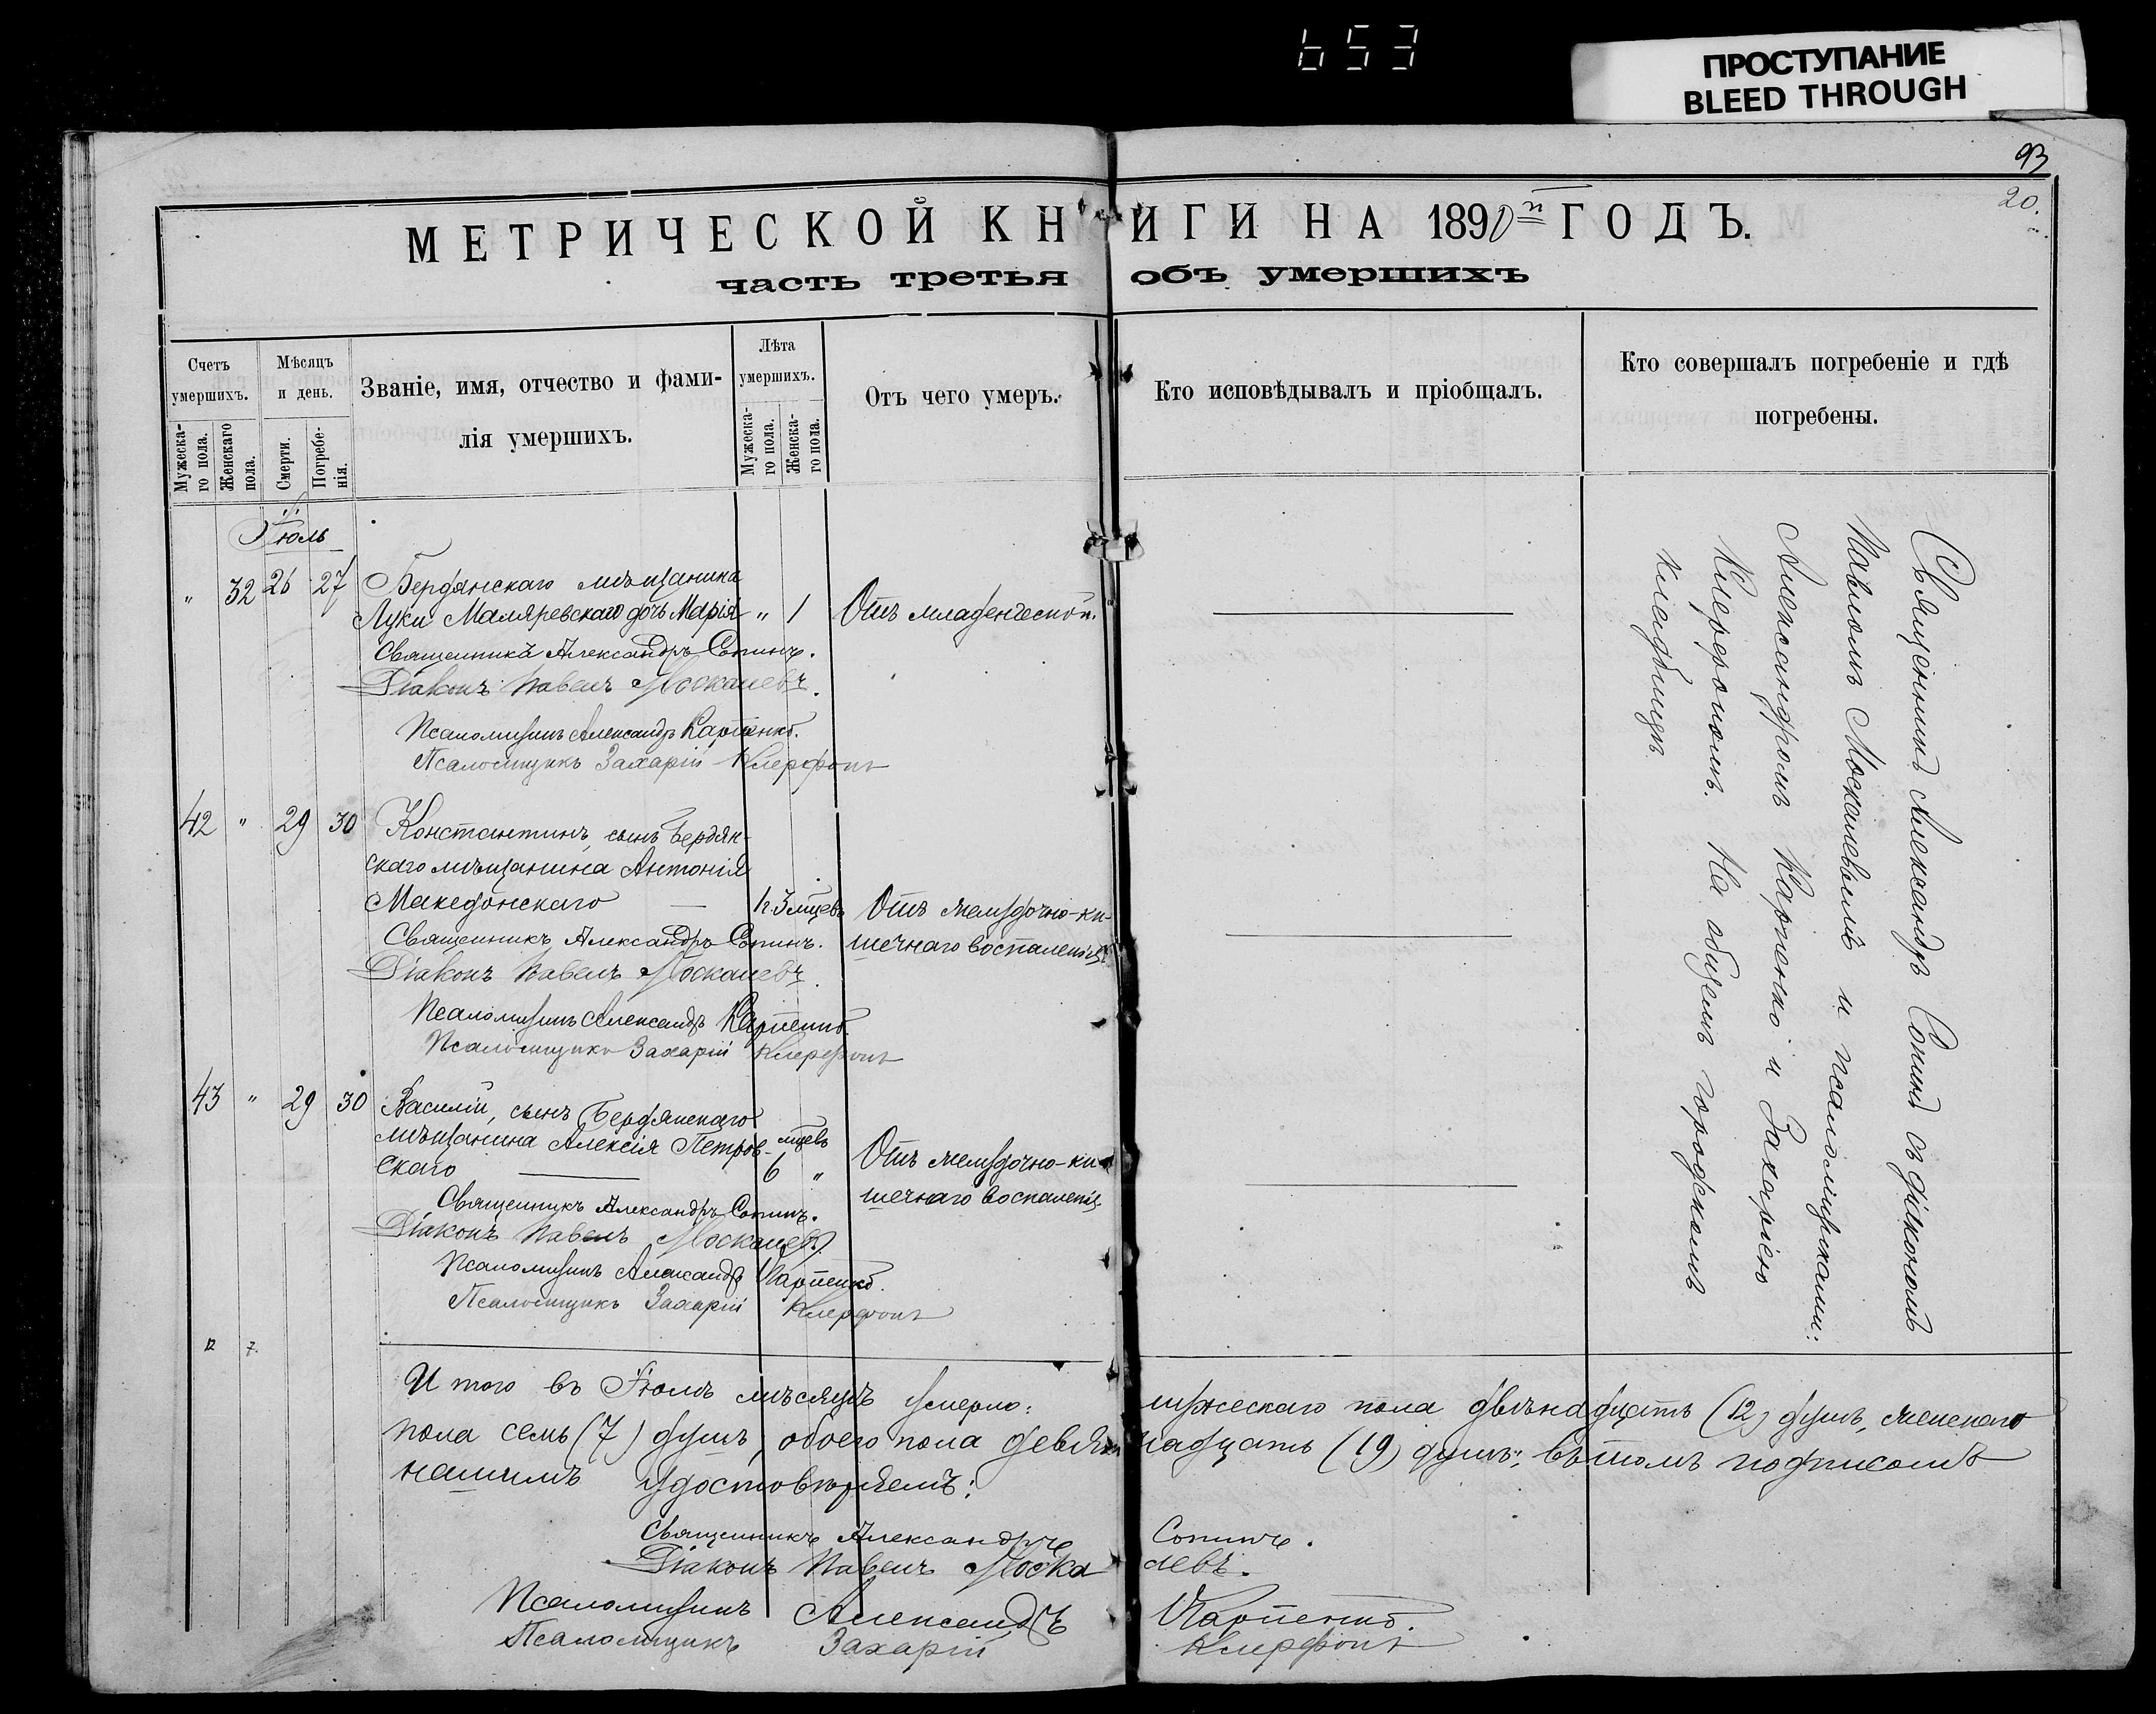 653
ПРОСТУПАНИЕ
BLEED THROUGH
93
20.
МЕТРИЧЕСКОЙ КНИГИ НА 1890й ГОДЪ.
часть третья объ умершихъ
Счетъ умершихъ.
Мужеска-го пола.
Женскаго пола.
Мѣсяцъ и день.
Смерти.
Погребе-нія.
Званіе, имя, отчество и фами-
лія умершихъ.
Лѣта умершихъ.
Мужеска-го пола.
Женска-го пола.
Отъ чего умеръ.
Кто исповѣдывалъ и пріобщалъ.
Кто совершалъ погребеніе и гдѣ
погребены.
Іюль
" 32 26 27 Бердянскаго мѣщанина
Луки Маляревскаго дочь Марія " 1 Отъ младенческой.
Священникъ Александръ Сопинъ.
Діаконъ Павелъ Москалевъ.
Псаломщикъ Александръ Карпенко.
Псаломщикъ Захарій
42 " 29 30 Константинъ, сынъ Бердян-
скаго мѣщанина Антонія
Македонскаго — 1г. 3 мцевъ Отъ желудочно-ки-
шечнаго воспаленія.
Священникъ Александръ Сопинъ.
Діаконъ Павелъ Москалевъ.
Псаломщикъ Александръ Карпенко.
Псаломщикъ Захарій
43 " 29 30 Василій, сынъ Бердянскаго
мѣщанина Алексія Петров- мцевъ
скаго — 6 " Отъ желудочно-ки-
шечнаго воспаленія.
Священникъ Александръ Сопинъ.
Діаконъ Павелъ Москалевъ.
Псаломщикъ Александръ Карпенко.
Псаломщикъ Захарій
Священникъ Александръ Сопинъ съ діакономъ
Павломъ Москалевымъ и псаломщиками:
Александромъ Карпенко и Захаріею
На общемъ городскомъ
кладбищѣ.
12 7.
Итого въ Іюлѣ мѣсяцѣ умерло: мужескаго пола двѣнадцать (12) душъ, женскаго
пола семь (7) душъ, обоего пола девятнадцать (19) душъ; въ томъ подписомъ
нашимъ удостовѣряемъ:
Священникъ Александръ Сопинъ.
Діаконъ Павелъ Москалевъ.
Псаломщикъ Александръ Карпенко.
Псаломщикъ Захарій